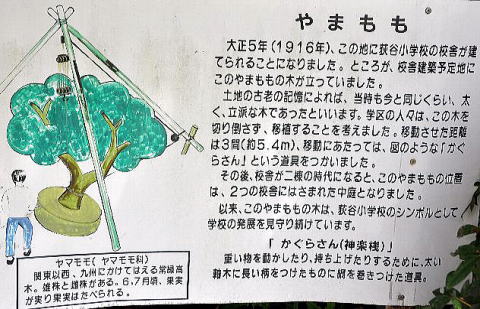 やまもも
大正5年(1916年)、この地に荻谷小学校の校舎が建
てられることになりました。ところが、校舎建築予定地に
このやまももの木が立っていました。
土地の古老の記憶によれば、当時も今と同じくらい、太
く、立派な木であったといいます。学区の人々は、この木を
切り倒さず、移植することを考えました。移動させた距離
は3間(約5.4m)、移動にあたっては、図のような「かぐ
らさん」という道具をつかいました。
その後、校舎が二棟の時代になると、このやまももの位置
は、2つの校舎にはさまれた中庭となりました。
以来、このやまももの木は、荻谷小学校のシンボルとして
学校の発展を見守り続けています。
「かぐらさん(神楽桟)」
重い物を動かしたり、持ち上げたりするために、太い
軸木に長い柄をつけたものに綱を巻きつけた道具。
ヤマモモ(ヤマモモ科)
関東以西、九州にかけてはえる常緑高
木。雄株と雌株がある。6,7月頃、果実
が実り果実はたべられる。